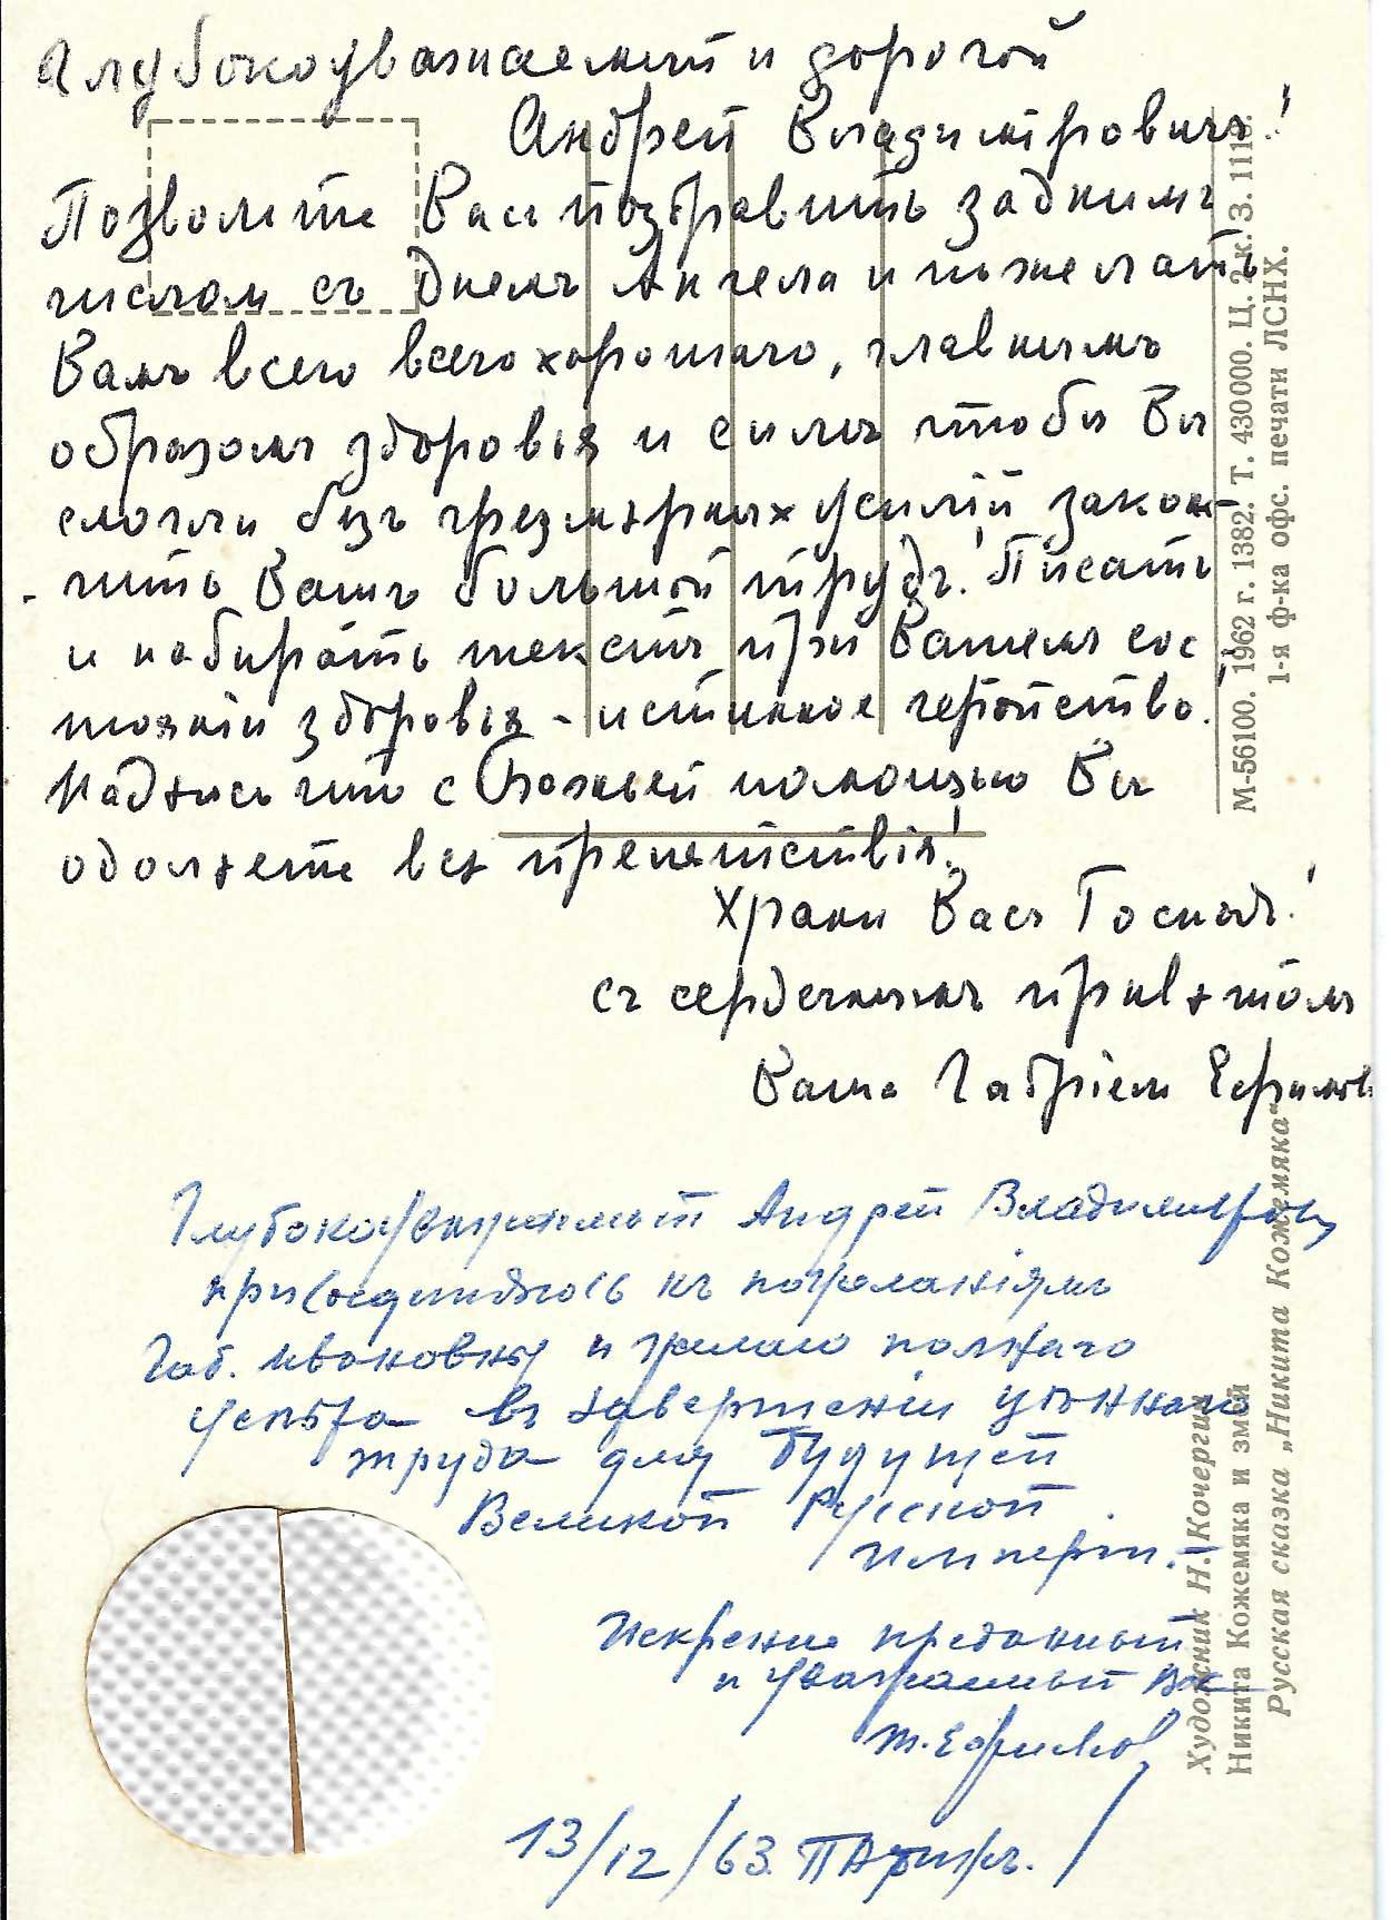 Глубокоуважаемый и дорогой
Андрей Владимiровичъ!
Позвольте Васъ поздравить заднимъ
числом съ Днемъ Ангела и пожелать
Вамъ всего всего хорошаго, главнымъ
образомъ здоровiя и силъ чтобы Вы
смогли безъ чрезмѣрных усилiй закон-
- чить Вашъ большой трудъ! Писать
и набирать текстъ при Вашемъ сос
тоянiи здоровiя - истинное геройство!
Надѣюсь что с Божьей помощью Вы
одолѣете всѣ препятствiя!
Храни Васъ Господь!
съ сердечнымъ привѣтомъ
Ваша Габрiель Ефимов
Глубокоуважаемый Андрей Владимирович,
присоединяюсь къ пожеланiямъ
Габ. Ивановны и желаю полнаго
успѣха въ завершенiи цѣннаго
труда для будущей
Великой Русской
Импери.-
Искренне преданный
и уважающий Вас
Т. Ефимов
13/12/63. ПАрижъ.
М-56100. 1962 г. 1382. Т. 430000. Ц. 2 к. З. 1116.
1-я ф-ка офс. печати ЛСНХ.
Художник Н. Кочергин
Никита Кожемяка и змей
Русская сказка „Никита Кожемяка“